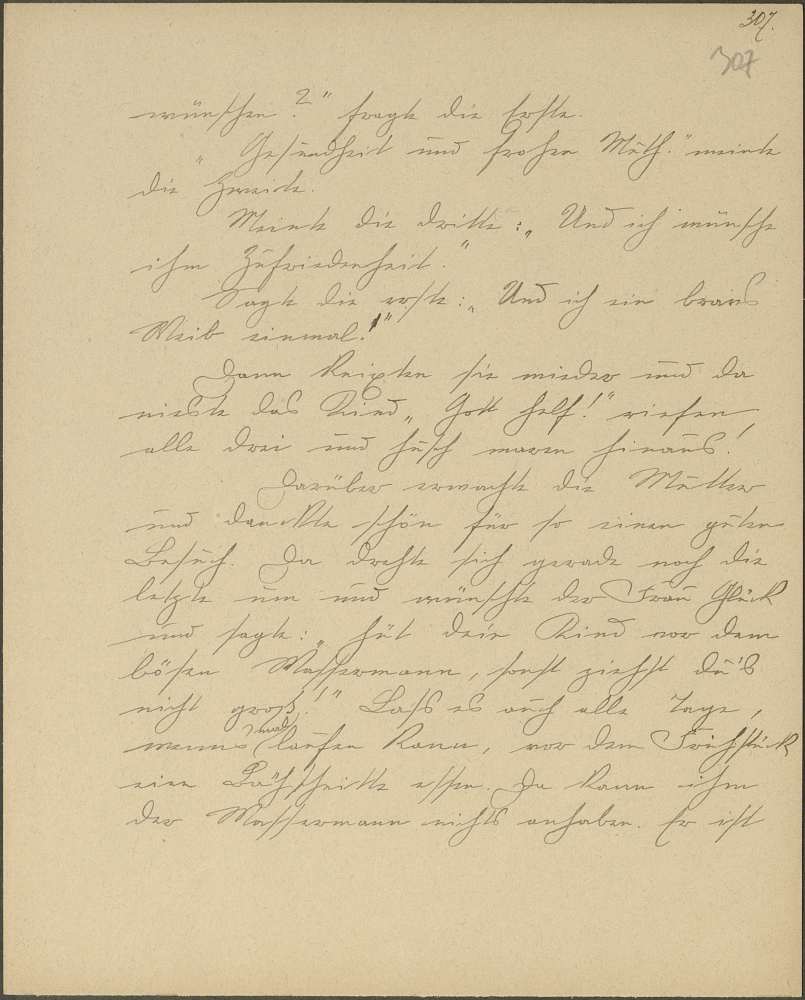 307.
307
wünschen?" fragte die Erste.
"Gesundheit und frohen Muth." meinte
die Zweite.
Meinte die dritte: "Und ich wünsche
ihm Zufriedenheit."
Sagte die erste: "Und ich ein braves
Weib einmal!"
Dann knixten sie wieder und da
nieste das Kind, "Gott helf!" riefen
alle drei und husch waren hinaus!
Darüber erwachte die Mutter
und dankte schön für so einen guten
Besuch. Da drehte sich gerade noch die
letzte um und wünschte der Frau Glück
und sagte: "Hüt dein Kind vor dem
bösen Wassermann, sonst ziehst du's
nicht groß!" Lass es auch alle Tage,
wenns mal laufen kann, vor dem Frühstück
eine Bähschnitte essen. Da kann ihm
der Wassermann nichts anhaben. Er ist